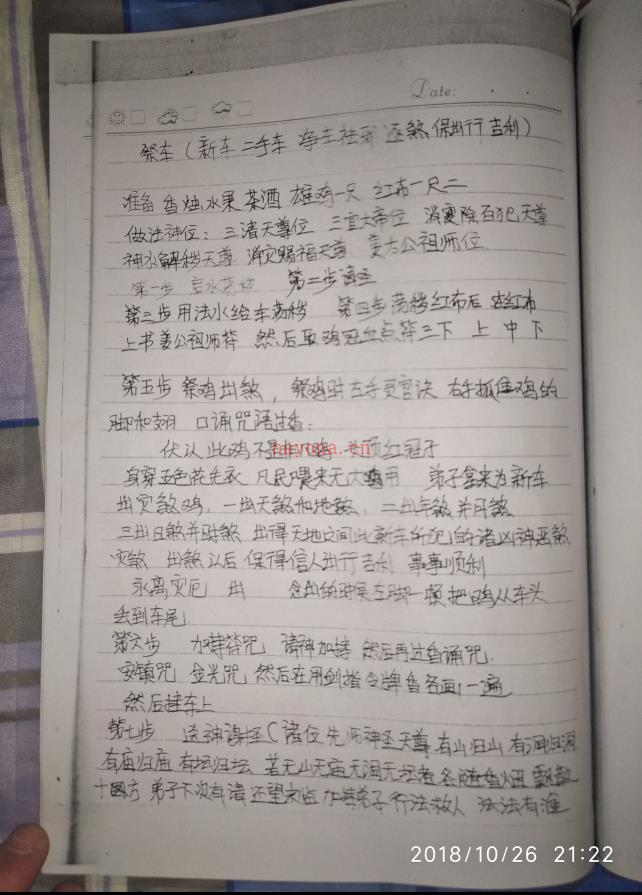 Date:
祭车（新车 二手车 净车祛邪 逐煞 保出行 吉利）
准备 香烛 水果 茶酒 雄鸡一只 红布一尺二
做法神位：三清天尊位 三官大帝位 消灾除百犯天尊
神水解秽天尊 消灾赐福天尊 姜太公祖师位
第一步 第二步请圣
第三步用法水给车荡秽 第四步荡秽红布后 在红布
上书姜公祖师符 然后取鸡冠血点符三下 上 中 下
第五步 祭鸡出煞，祭鸡时左手 右手抓住鸡的
脚和翅 口诵咒语过香：
伏认此鸡不是非 鸡 头顶红冠子
身穿五色花毛衣 凡民 来无大 用 弟子拿来为新车
出灾煞鸡，一出天煞和地煞，二出年煞并月煞
三出日煞并时煞 出得天地之间此新车所犯的诸凶神恶煞
灾煞 出煞以后 保得信人出行吉利 事事顺利
永离灾厄 出 念出的时候左脚一顿把鸡从车头
丢到车尾
第六步 加持符咒 请神加持 然后再过香诵咒
安镇咒 金光咒 然后在用剑指令牌香各画一遍
然后挂车上
第七步 送神 （诸位先师神圣天尊 有山归山 有洞归洞
有庙归庙 有坛归坛 若无山无庙无洞无坛者 各随香烟 飘散
十四方 弟子下次有请 还望来临 加持弟子行法救人 法法有准
haryona.cn
2018/10/26 21:22